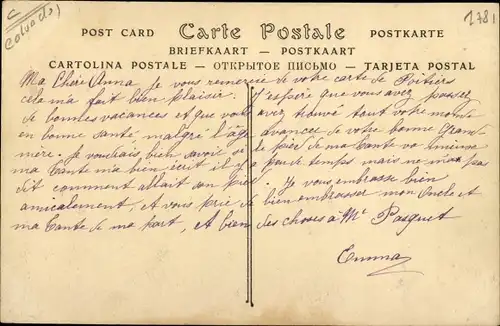 C
(Calvados)
1781
POST CARD Carte Postale POSTKARTE
BRIEFKAART — POSTKAART
CARTOLINA POSTALE — ОТКРЫТОЕ ПИСЬМО — TARJETA POSTAL
Ma Chère Anna Je vous remercie de votre carte de Poitiers
cela ma fait bien plaisir. J'espère que vous avez passez
de bonnes vacances et que vous avez trouvé tout votre monde
en bonne santé malgré l'âge avancée de votre bonne Grand
mère. Je voudrais bien savoir si le pied de ma Tante va mieux
ma Tante ma bien écrit il y a peu de temps mais ne m'a pas
dit comment allait son pied. Je vous embrasse bien
amicalement, et vous prie de bien embrasser mon Oncle et
ma Tante de ma part, et bien des choses à Mr Pasquet
Emma